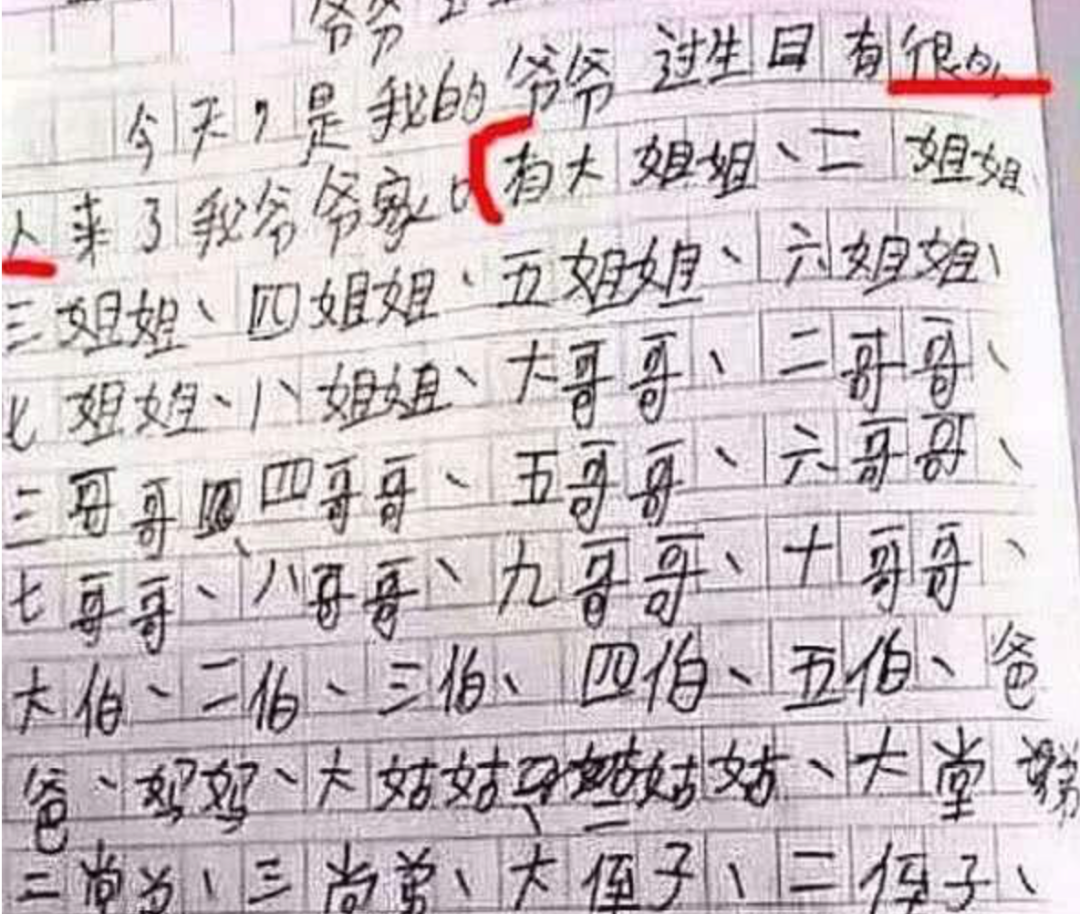 爷爷
今天,是我的爷爷过生日有很
人来了我爷爷家 有大姐姐、二姐姐
三姐姐、四姐姐、五姐姐、六姐姐、
七姐姐、八姐姐、大哥哥、二哥哥、
三哥哥、四哥哥、五哥哥、六哥哥、
七哥哥、八哥哥、九哥哥、十哥哥、
大伯、二伯、三伯、四伯、五伯、爸
爸、妈妈、大姑姑、二姑姑、大堂
二 三 大侄子、二侄子、